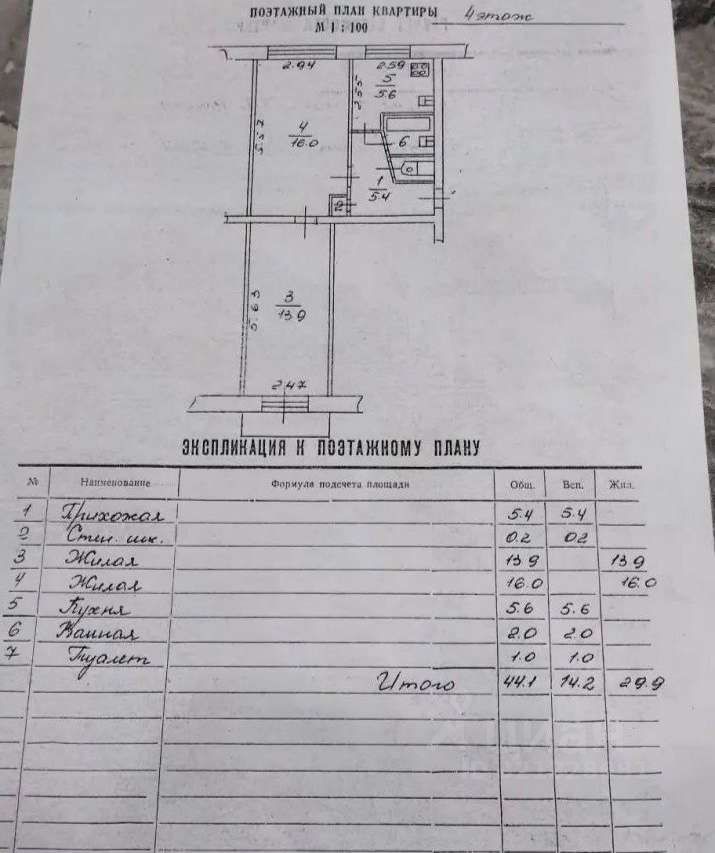 ПОЭТАЖНЫЙ ПЛАН КВАРТИРЫ 4 этаж
М 1 : 100
2.94 2.59
5
5.6
2.55
5.57
4
16.0
6
1
5.4
2
3
13.9
5.63
2.47
ЭКСПЛИКАЦИЯ К ПОЭТАЖНОМУ ПЛАНУ
№ Наименование Формула подсчета площади Общ. Всп. Жил.
1 Прихожая 5.4 5.4
2 Стен. шк. 0.2 0.2
3 Жилая 13.9 13.9
4 Жилая 16.0 16.0
5 Кухня 5.6 5.6
6 Ванная 2.0 2.0
7 Туалет 1.0 1.0
Итого 44.1 14.2 29.9